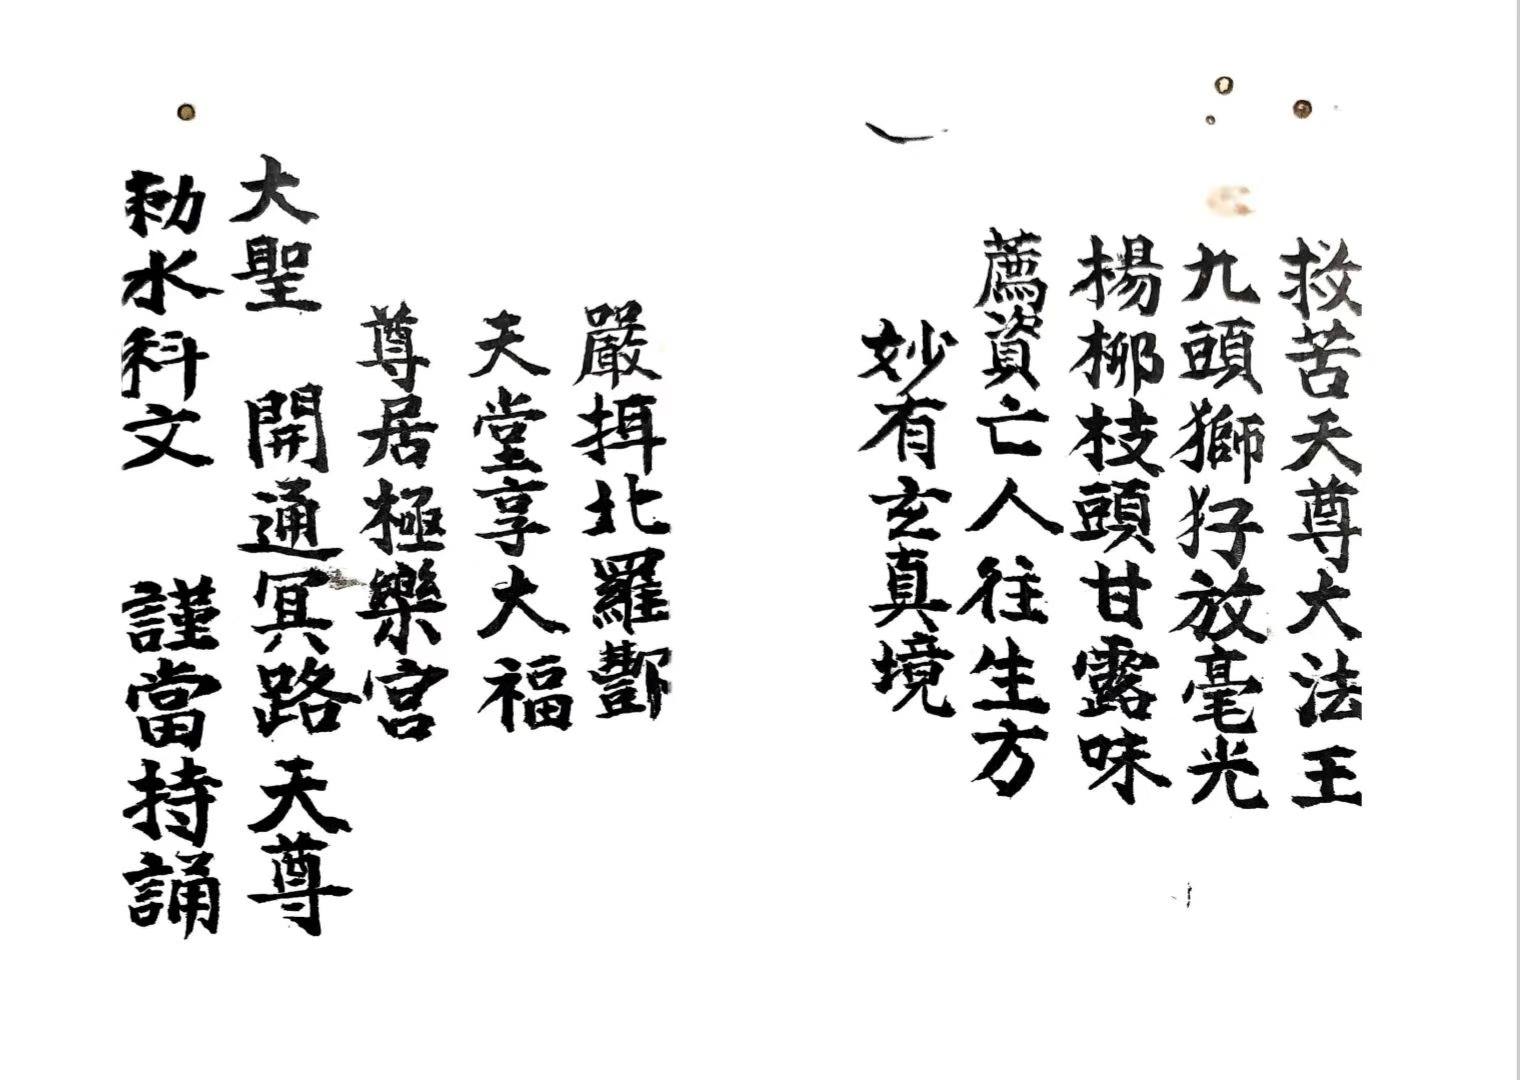 救苦天尊大法王
九頭獅犴放毫光
楊柳枝頭甘露味
薦資亡人往生方
妙有玄真境
嚴揖北羅酆
天堂享大福
尊居極樂宮
大聖 開通冥路天尊
勅水科文 謹當持誦